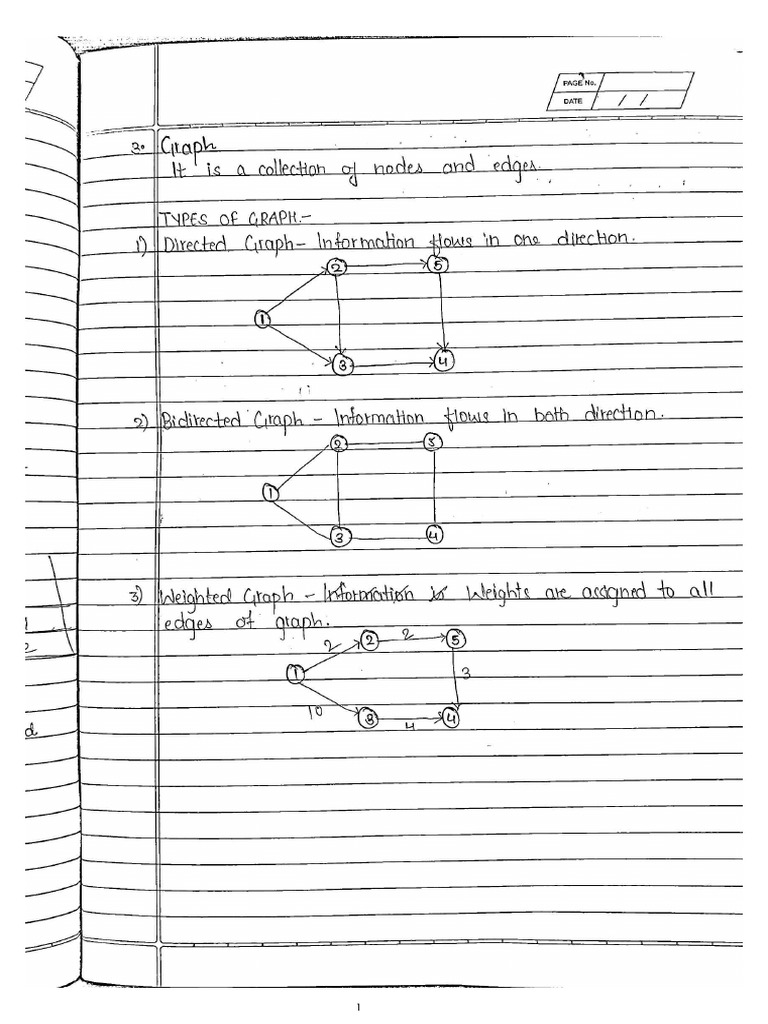 PAGE No.
DATE / /
2. Graph
It is a collection of nodes and edges.
TYPES OF GRAPH:-
1) Directed Graph - Information flows in one direction.
2 5
1
3 4
2) Bidirected Graph - Information flows in both direction.
2 5
1
3 4
3) Weighted Graph - Information is Weights are assigned to all
edges of graph.
2 2 2 5
1 3
10 3 4 4
2
d
1